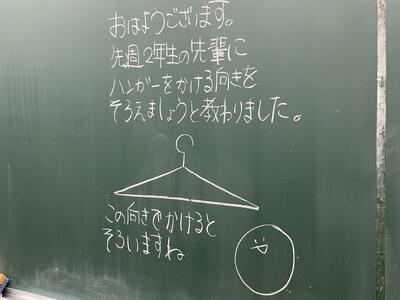 おはようございます。
先週2年生の先輩に
ハンガーをかける向きを
そろえましょうと教わりました。
この向きでかけると
そろいますね